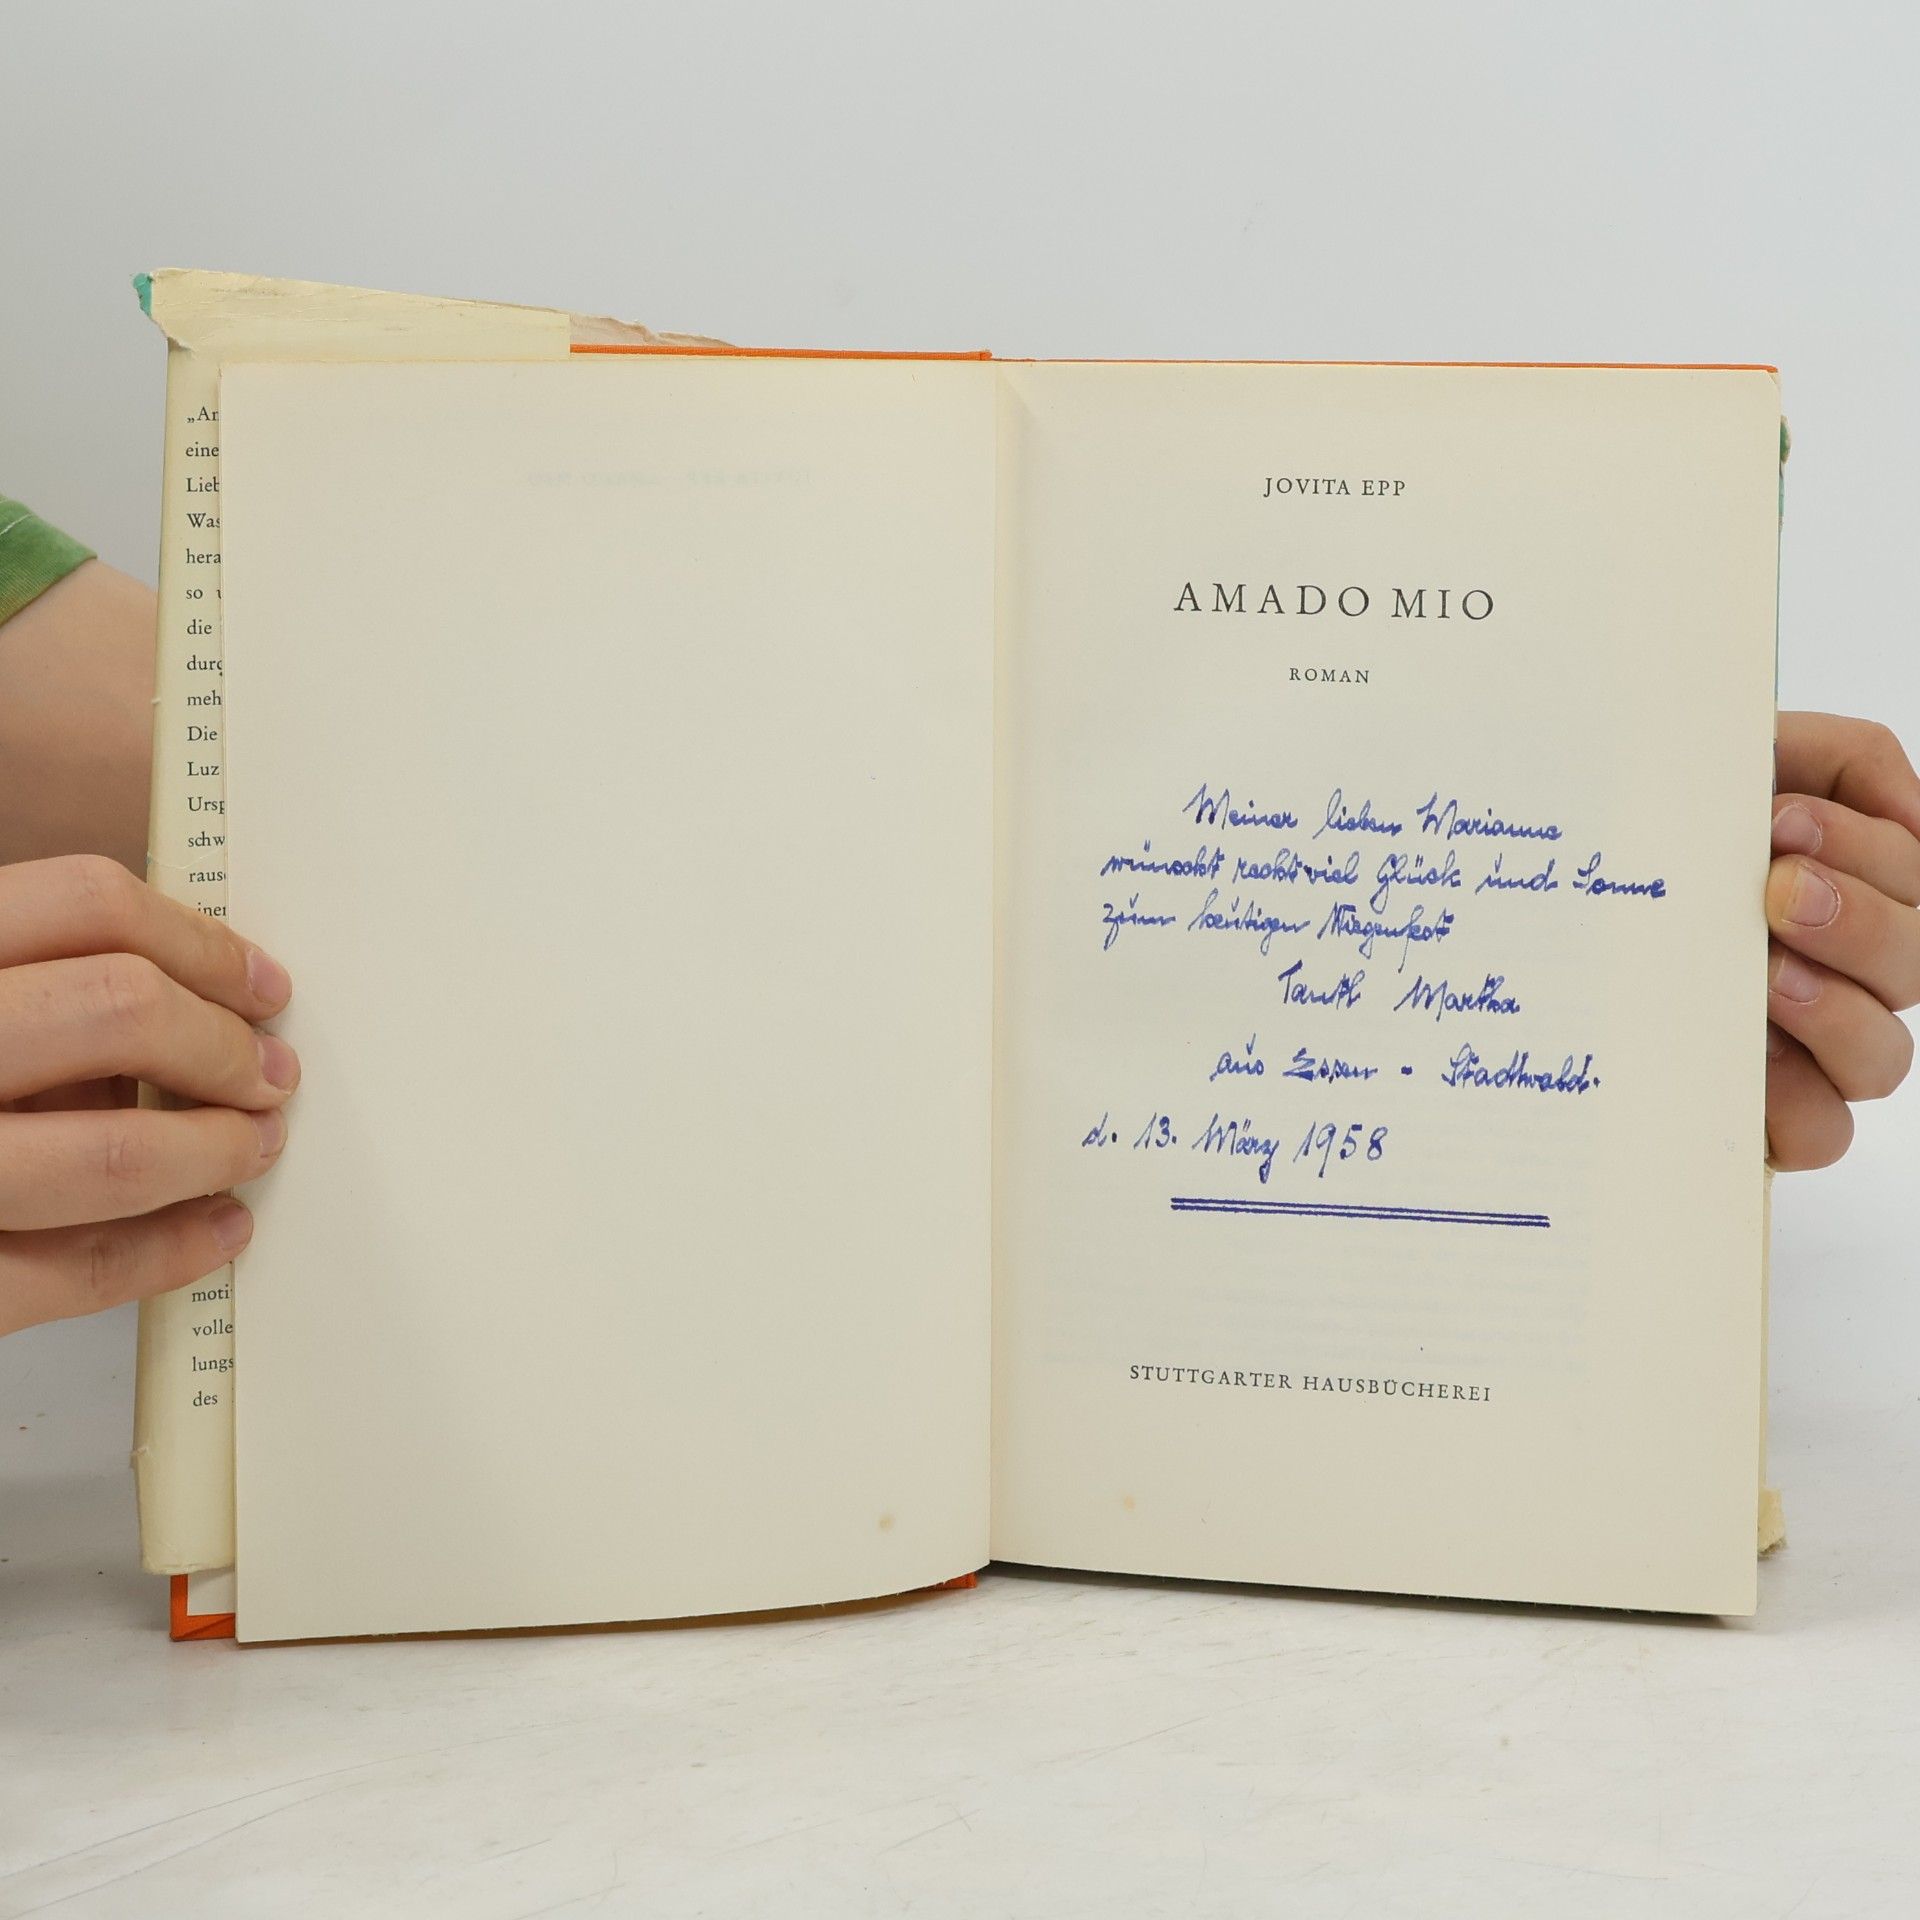 „An
eine
Lieb
Was
hera
so u
die
durc
meh
Die
Luz
Ursp
schw
raus
einer
moti
volle
lungs
des
JOVITA EPP
AMADO MIO
ROMAN
Meiner lieben Marianne
wünscht recht viel Glück und Sonne
zum heutigen
Martha
aus Essen - Stadtwald.
d. 13. März 1958
STUTTGARTER HAUSBÜCHEREI